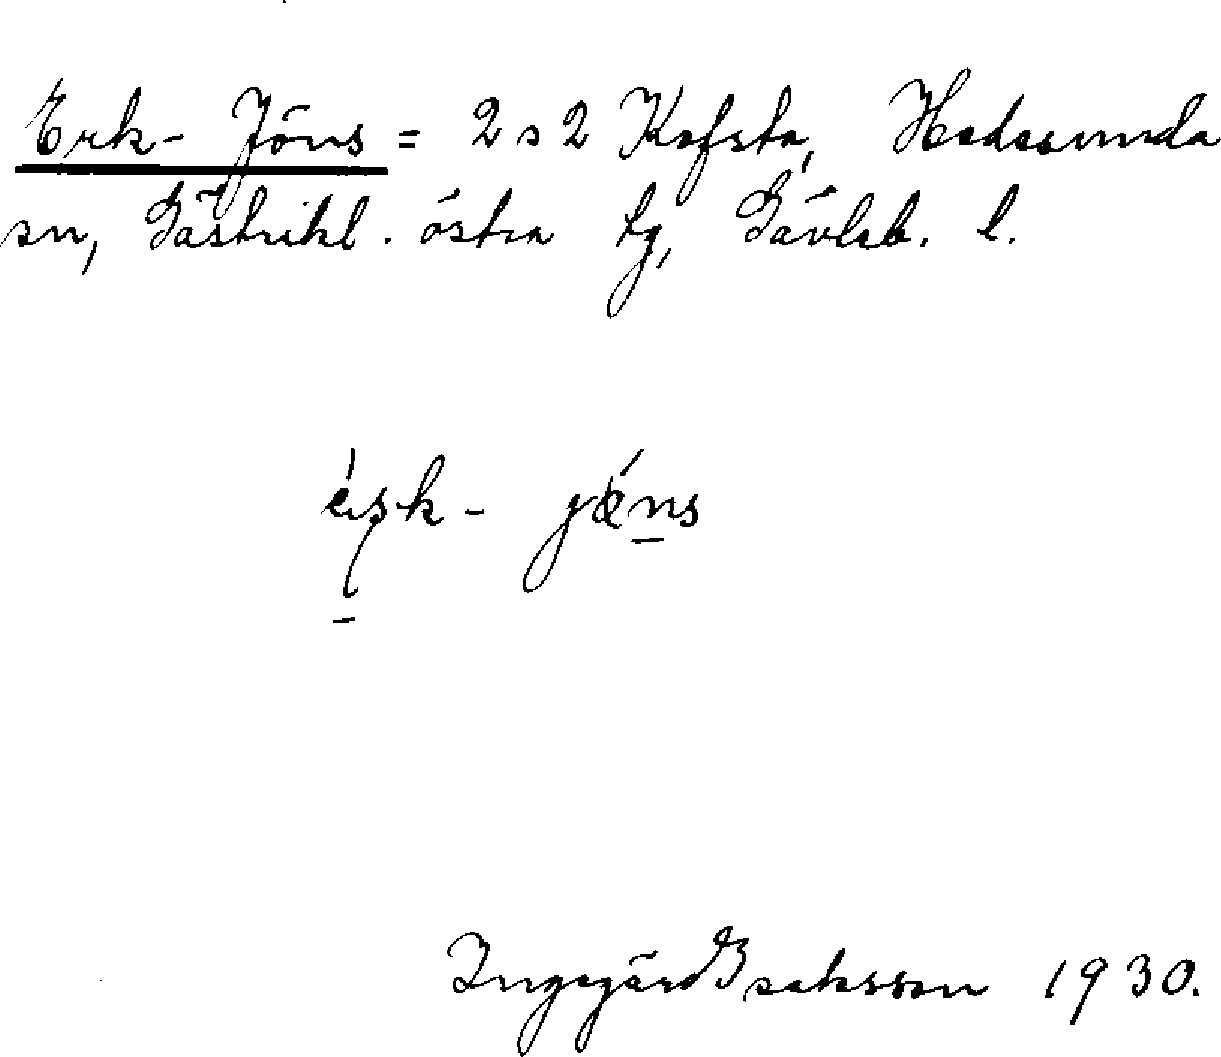 Erk-Jöns = 2s2 Kafsta, Hedesunda
sn, Gästrikl. östra tg, Gävleb. l.
Ingegärd Isaksson 1930.